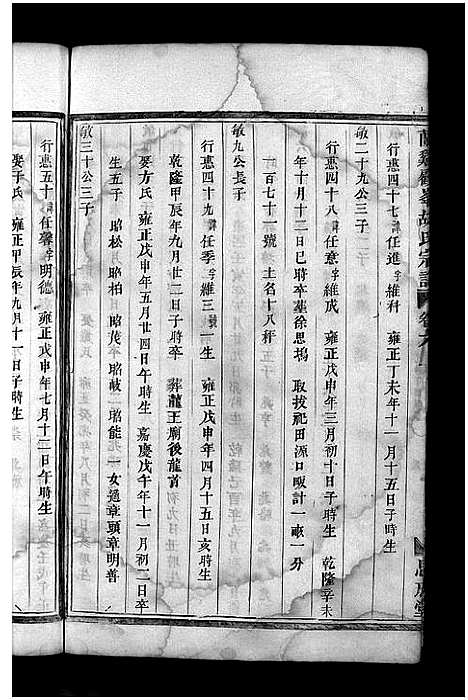 行惠四十七諱任進字維科　雍正丁未年十一月十五日子時生
敏二十九公三子　二子
行惠四十八諱任意字維成　雍正戊申年三月初十日子時生　乾隆辛未
年十月十二日巳時卒葬徐思塢　取拔祀田源口畈計一畝一分
一百七十一號　土名十八秤
敏九公長子
行惠四十九諱任季字維三　一生　雍正戊申年四月十五日亥時生
乾隆甲辰年九月廿二日子時卒　葬龍王廟後龍首
娶方氏　雍正戊申年五月廿四日午時生　嘉慶戊午年十一月初二日卒
生五子　昭松　昭柏　昭茂　昭岐　昭能　一女適章頭章明普
敏三十公三子
行惠五十諱任馨字明德　雍正戊申年七月十二日午時生
娶于氏　雍正甲辰年九月十一日子時生